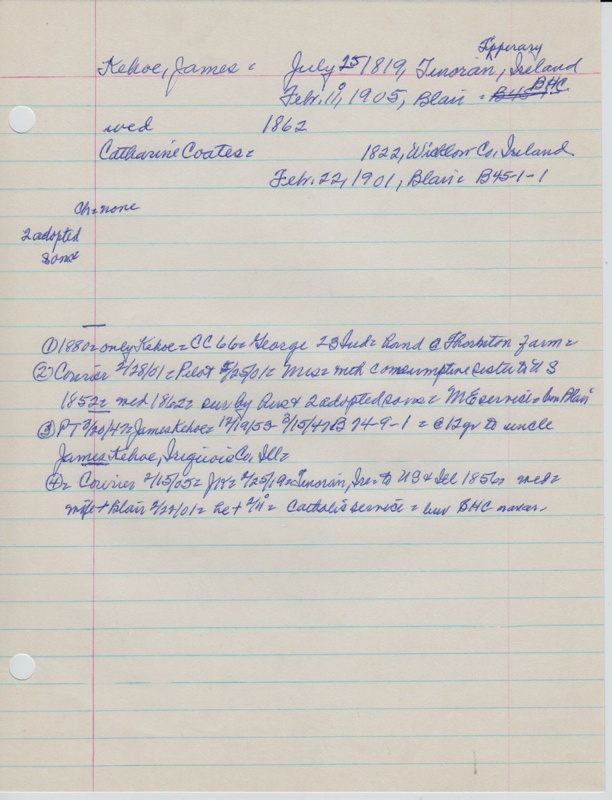 Tipperary
Kehoe, James = July 25 1819, Tinorán, Ireland
BHC.
Feb. 11, 1905, Blair = B45-1-
wed 1862
Catharine Coates = 1822, Wicklow Co, Ireland
Feb. 22, 1901, Blair = B45-1-1
Ch = none
2 adopted
sons
① 1880 = only Kehoe = CC 66 = George 23 Ind = hand @ Thornton farm =
② Courier 2/28/01 = Pilot = Mrs = with consumptive sister to U S
1852 = wed 1862 = sur by hus & 2 adopted sons = M E service = bur Blair
③ PT 3/20/47 = James Kehoe = 12/19/53 - 3/15/47 B 74-9-1 = @ 12 yr to uncle
James Kehoe, Iroquois Co, Ill =
④ = Courier 2/15/05 = JK = 2/25/19 = Tinorán, Ire = to US & Ill 1856 = wed =
wife + Blair 2/22/01 = he + 2/11 = Catholic service = bur BHC